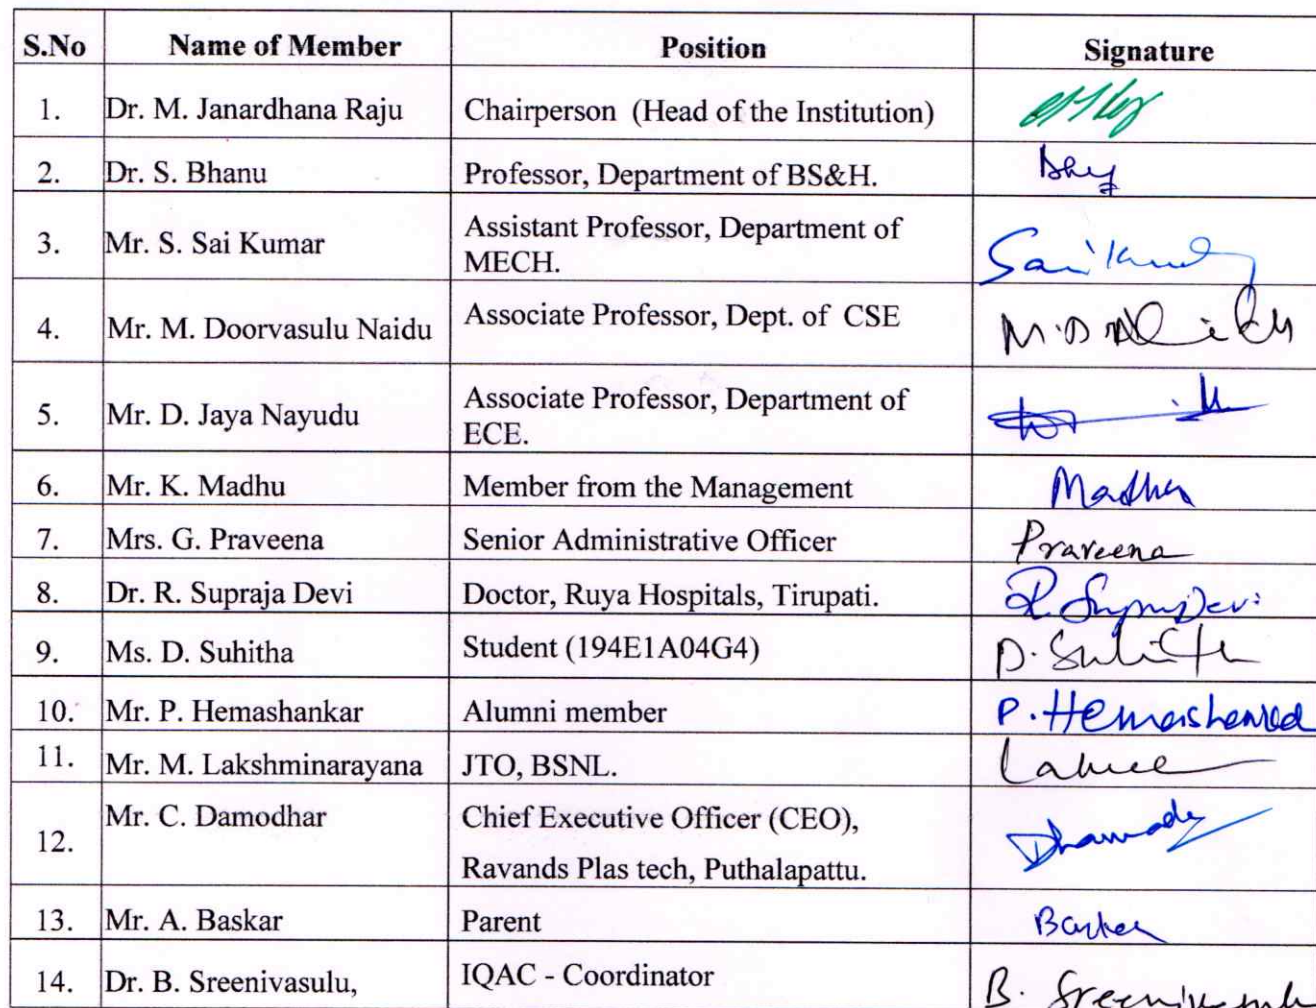 S.No Name of Member Position Signature
1. Dr. M. Janardhana Raju Chairperson (Head of the Institution)
2. Dr. S. Bhanu Professor, Department of BS&H.
3. Mr. S. Sai Kumar Assistant Professor, Department of
MECH.
4. Mr. M. Doorvasulu Naidu Associate Professor, Dept. of CSE
5. Mr. D. Jaya Nayudu Associate Professor, Department of
ECE.
6. Mr. K. Madhu Member from the Management Madhu
7. Mrs. G. Praveena Senior Administrative Officer Praveena
8. Dr. R. Supraja Devi Doctor, Ruya Hospitals, Tirupati.
9. Ms. D. Suhitha Student (194E1A04G4) D. Suhitha
10. Mr. P. Hemashankar Alumni member P. Hemashankar
11. Mr. M. Lakshminarayana JTO, BSNL.
12. Mr. C. Damodhar Chief Executive Officer (CEO),
Ravands Plas tech, Puthalapattu.
13. Mr. A. Baskar Parent Baskar
14. Dr. B. Sreenivasulu, IQAC - Coordinator B. Sreenivasulu